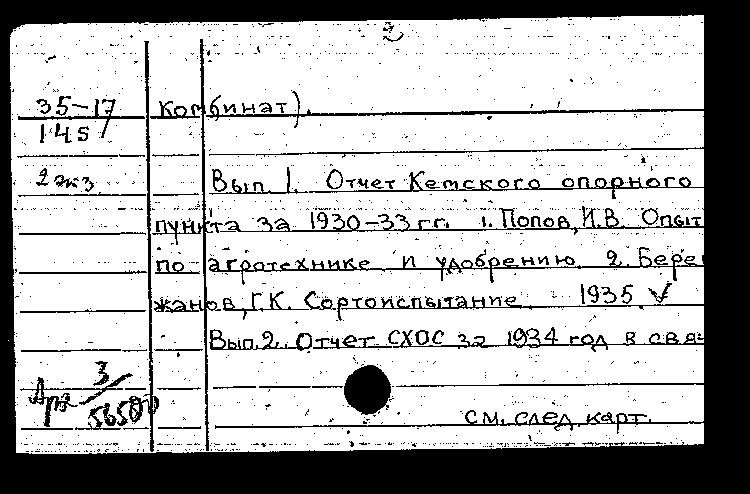 2
35-17 комбинат).
145
2 экз. Вып. 1. Отчет Кемского опорного
пункта за 1930-33 гг. 1. Попов, И.В. Опыт
по агротехнике и удобрению 2. Бере
жанов, Г.К. Сортоиспытание 1935 V
Вып. 2. Отчет СХОС за 1934 год в свя-
3
56580
см. след. карт.